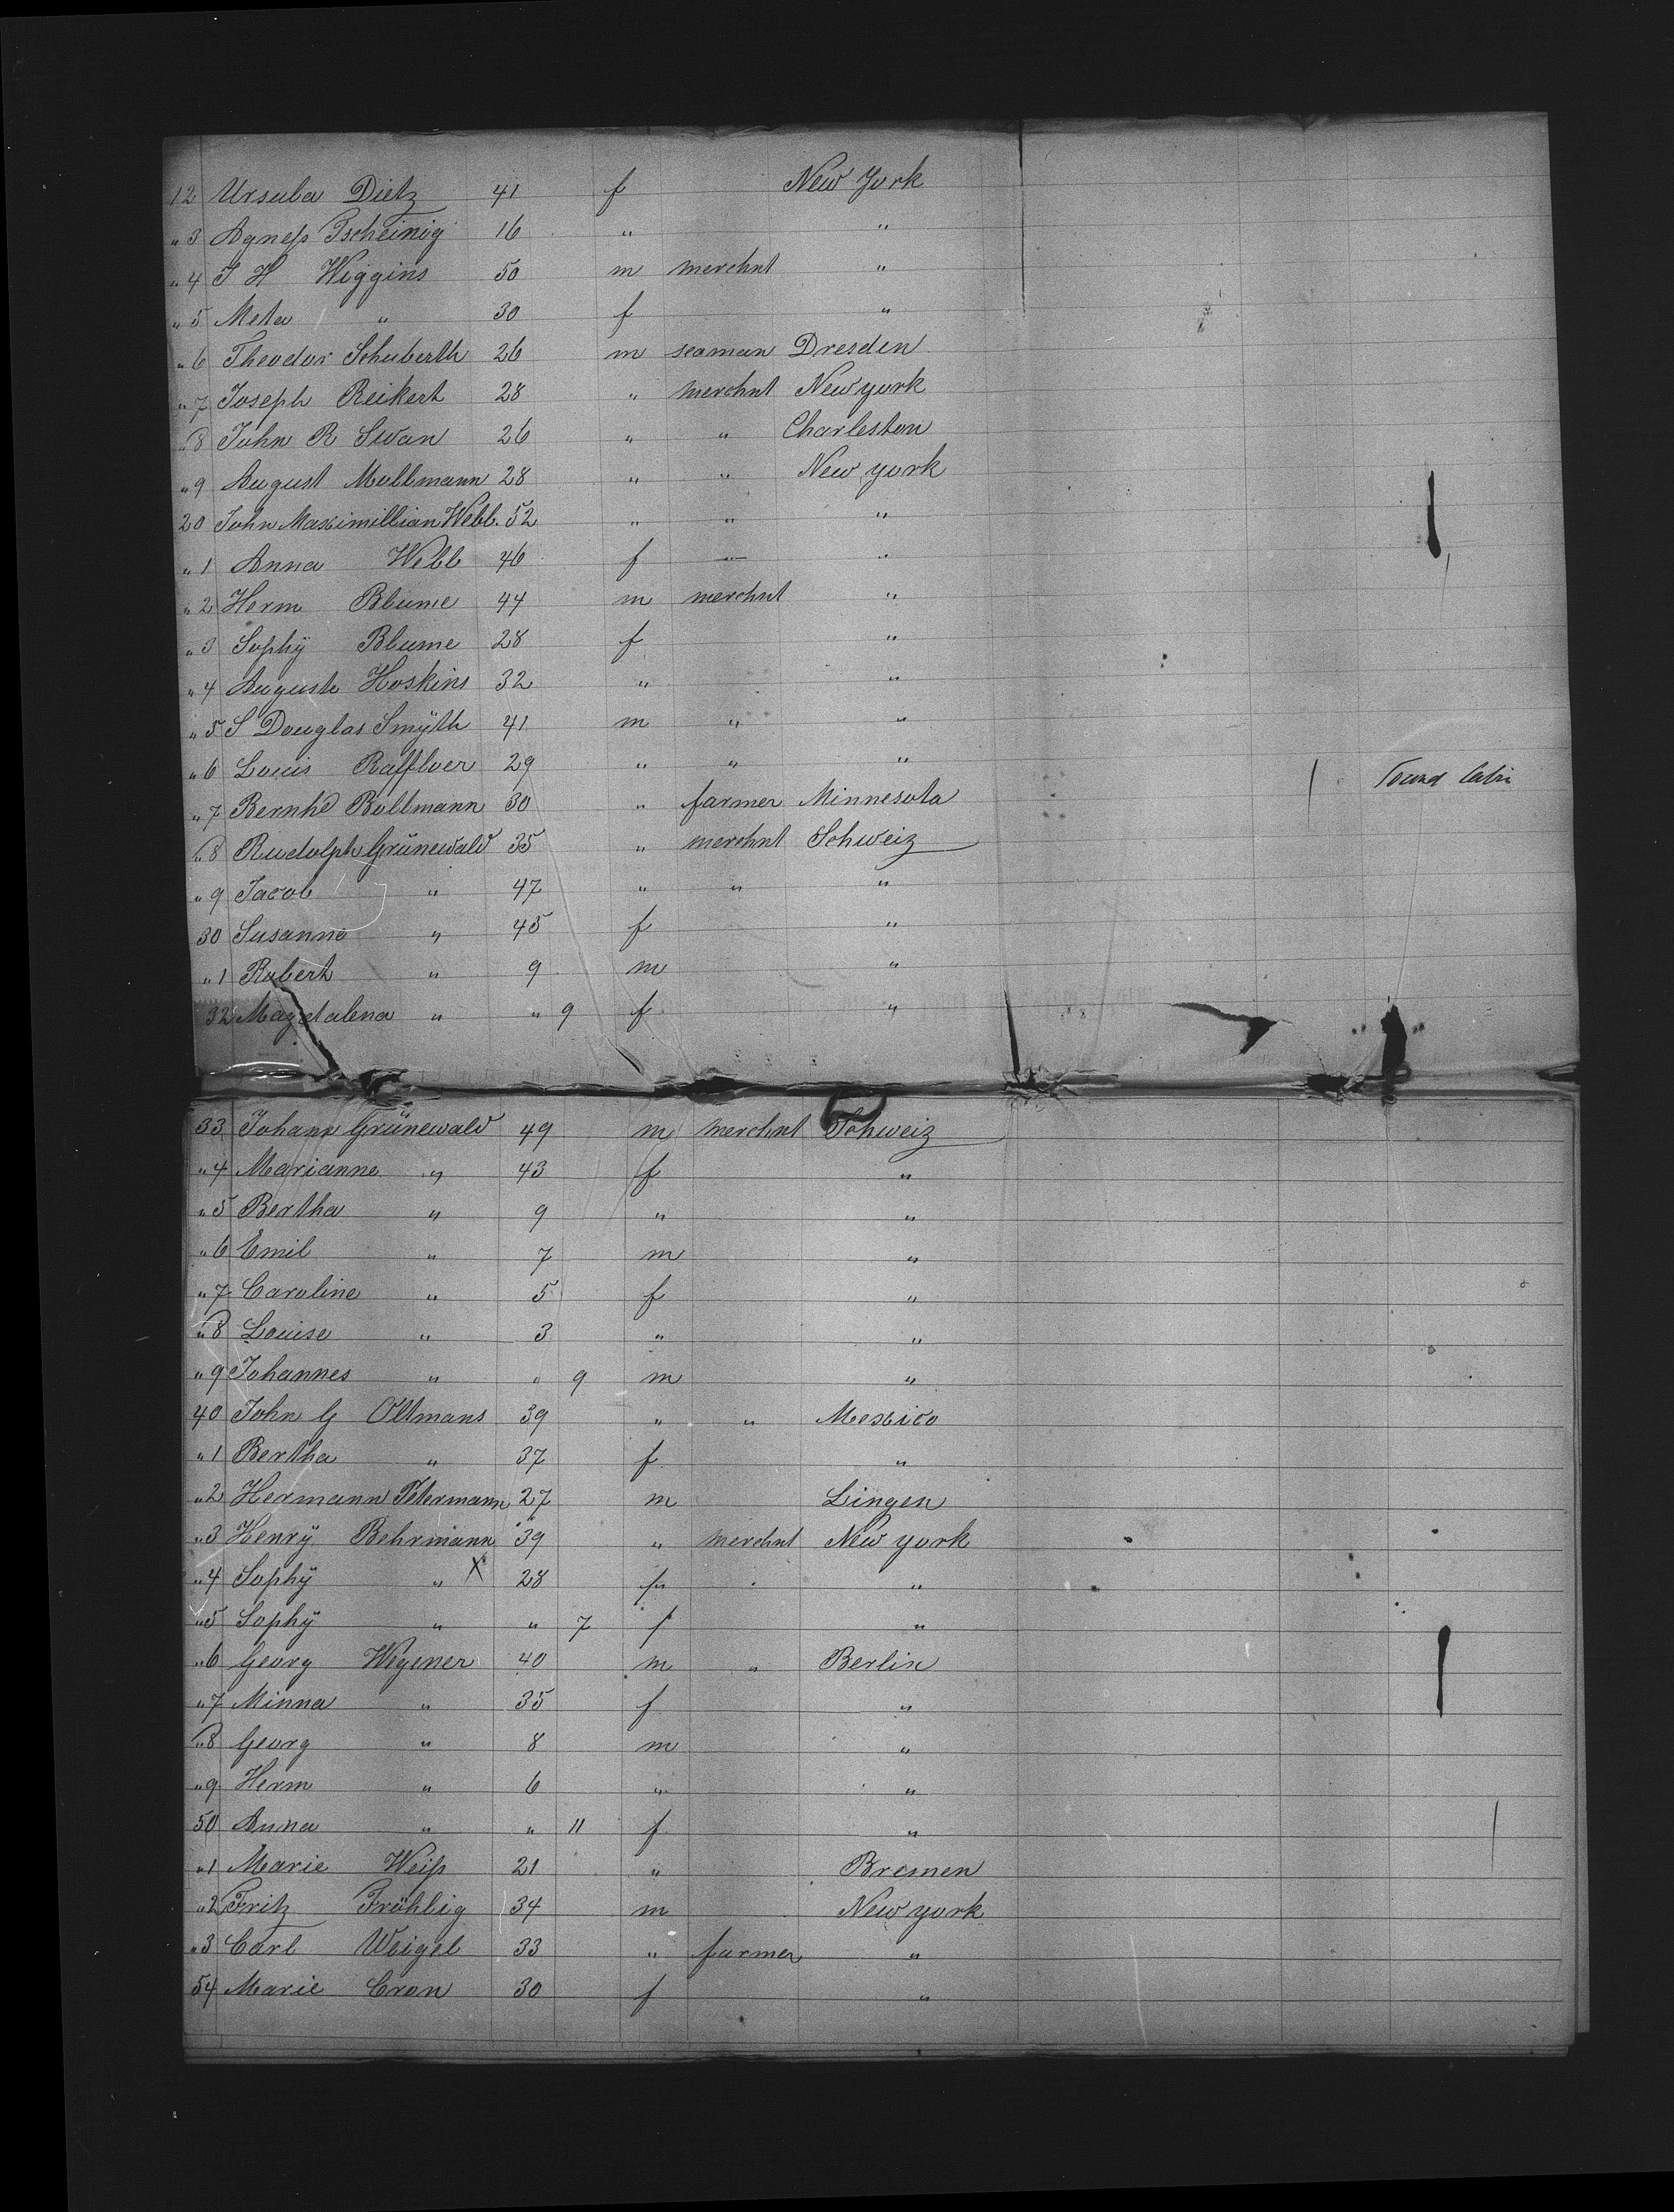 12 Ursula Dietz 41 f New York
"3 Agneſs Tscheinig 16 " "
"4 J H Wiggins 50 m merchnt "
"5 Meta " 30 f "
"6 Theodor Schuberth 26 m seaman Dresden
"7 Joseph Reikert 28 " merchnt New york
"8 John R Swan 26 " " Charleston
"9 August Mollmann 28 " " New york
20 John Maximillian Webb. 52 " " "
"1 Anna Webb 46 f " "
"2 Herm Blume 44 m merchnt "
"3 Sophÿ Blume 28 f "
"4 Auguste Hoskins 32 " "
"5 S Douglas Smÿth 41 m " "
"6 Louis 29 " " "
"7 Bernhd Bollmann 30 " farmer Minnesota
"8 Rudolph Grünewald 35 " merchnt Schweiz
"9 Jacob " 47 " " "
30 Susanne " 45 f "
"1 Robert " 9 m "
32 Magdalena " " 9 f "
33 Johann Grünewald 49 m merchnt Schweiz
"4 Marianne " 43 f "
"5 Bertha " 9 " "
"6 Emil " 7 m "
"7 Caroline " 5 f "
"8 Louise " 3 " "
"9 Johannes " " 9 m "
40 John G Oltmans 39 " " Mexico
"1 Bertha " 37 f "
"2 Hermann Petermann 27 m Lingen
"3 Henrÿ Behrmann 39 " merchnt New york
"4 Sophÿ " X 28 f " "
"5 Sophÿ " " 7 f "
"6 Georg Wegener 40 m " Berlin
"7 Minna " 35 f "
"8 Georg " 8 m "
"9 Herm " 6 " "
50 Anna " " 11 f "
"1 Marie Weiſs 21 " Bremen
"2 Fritz Fröhlig 34 m New york
"3 Carl Weigel 33 " farmer "
54 Marie Cron 30 f "